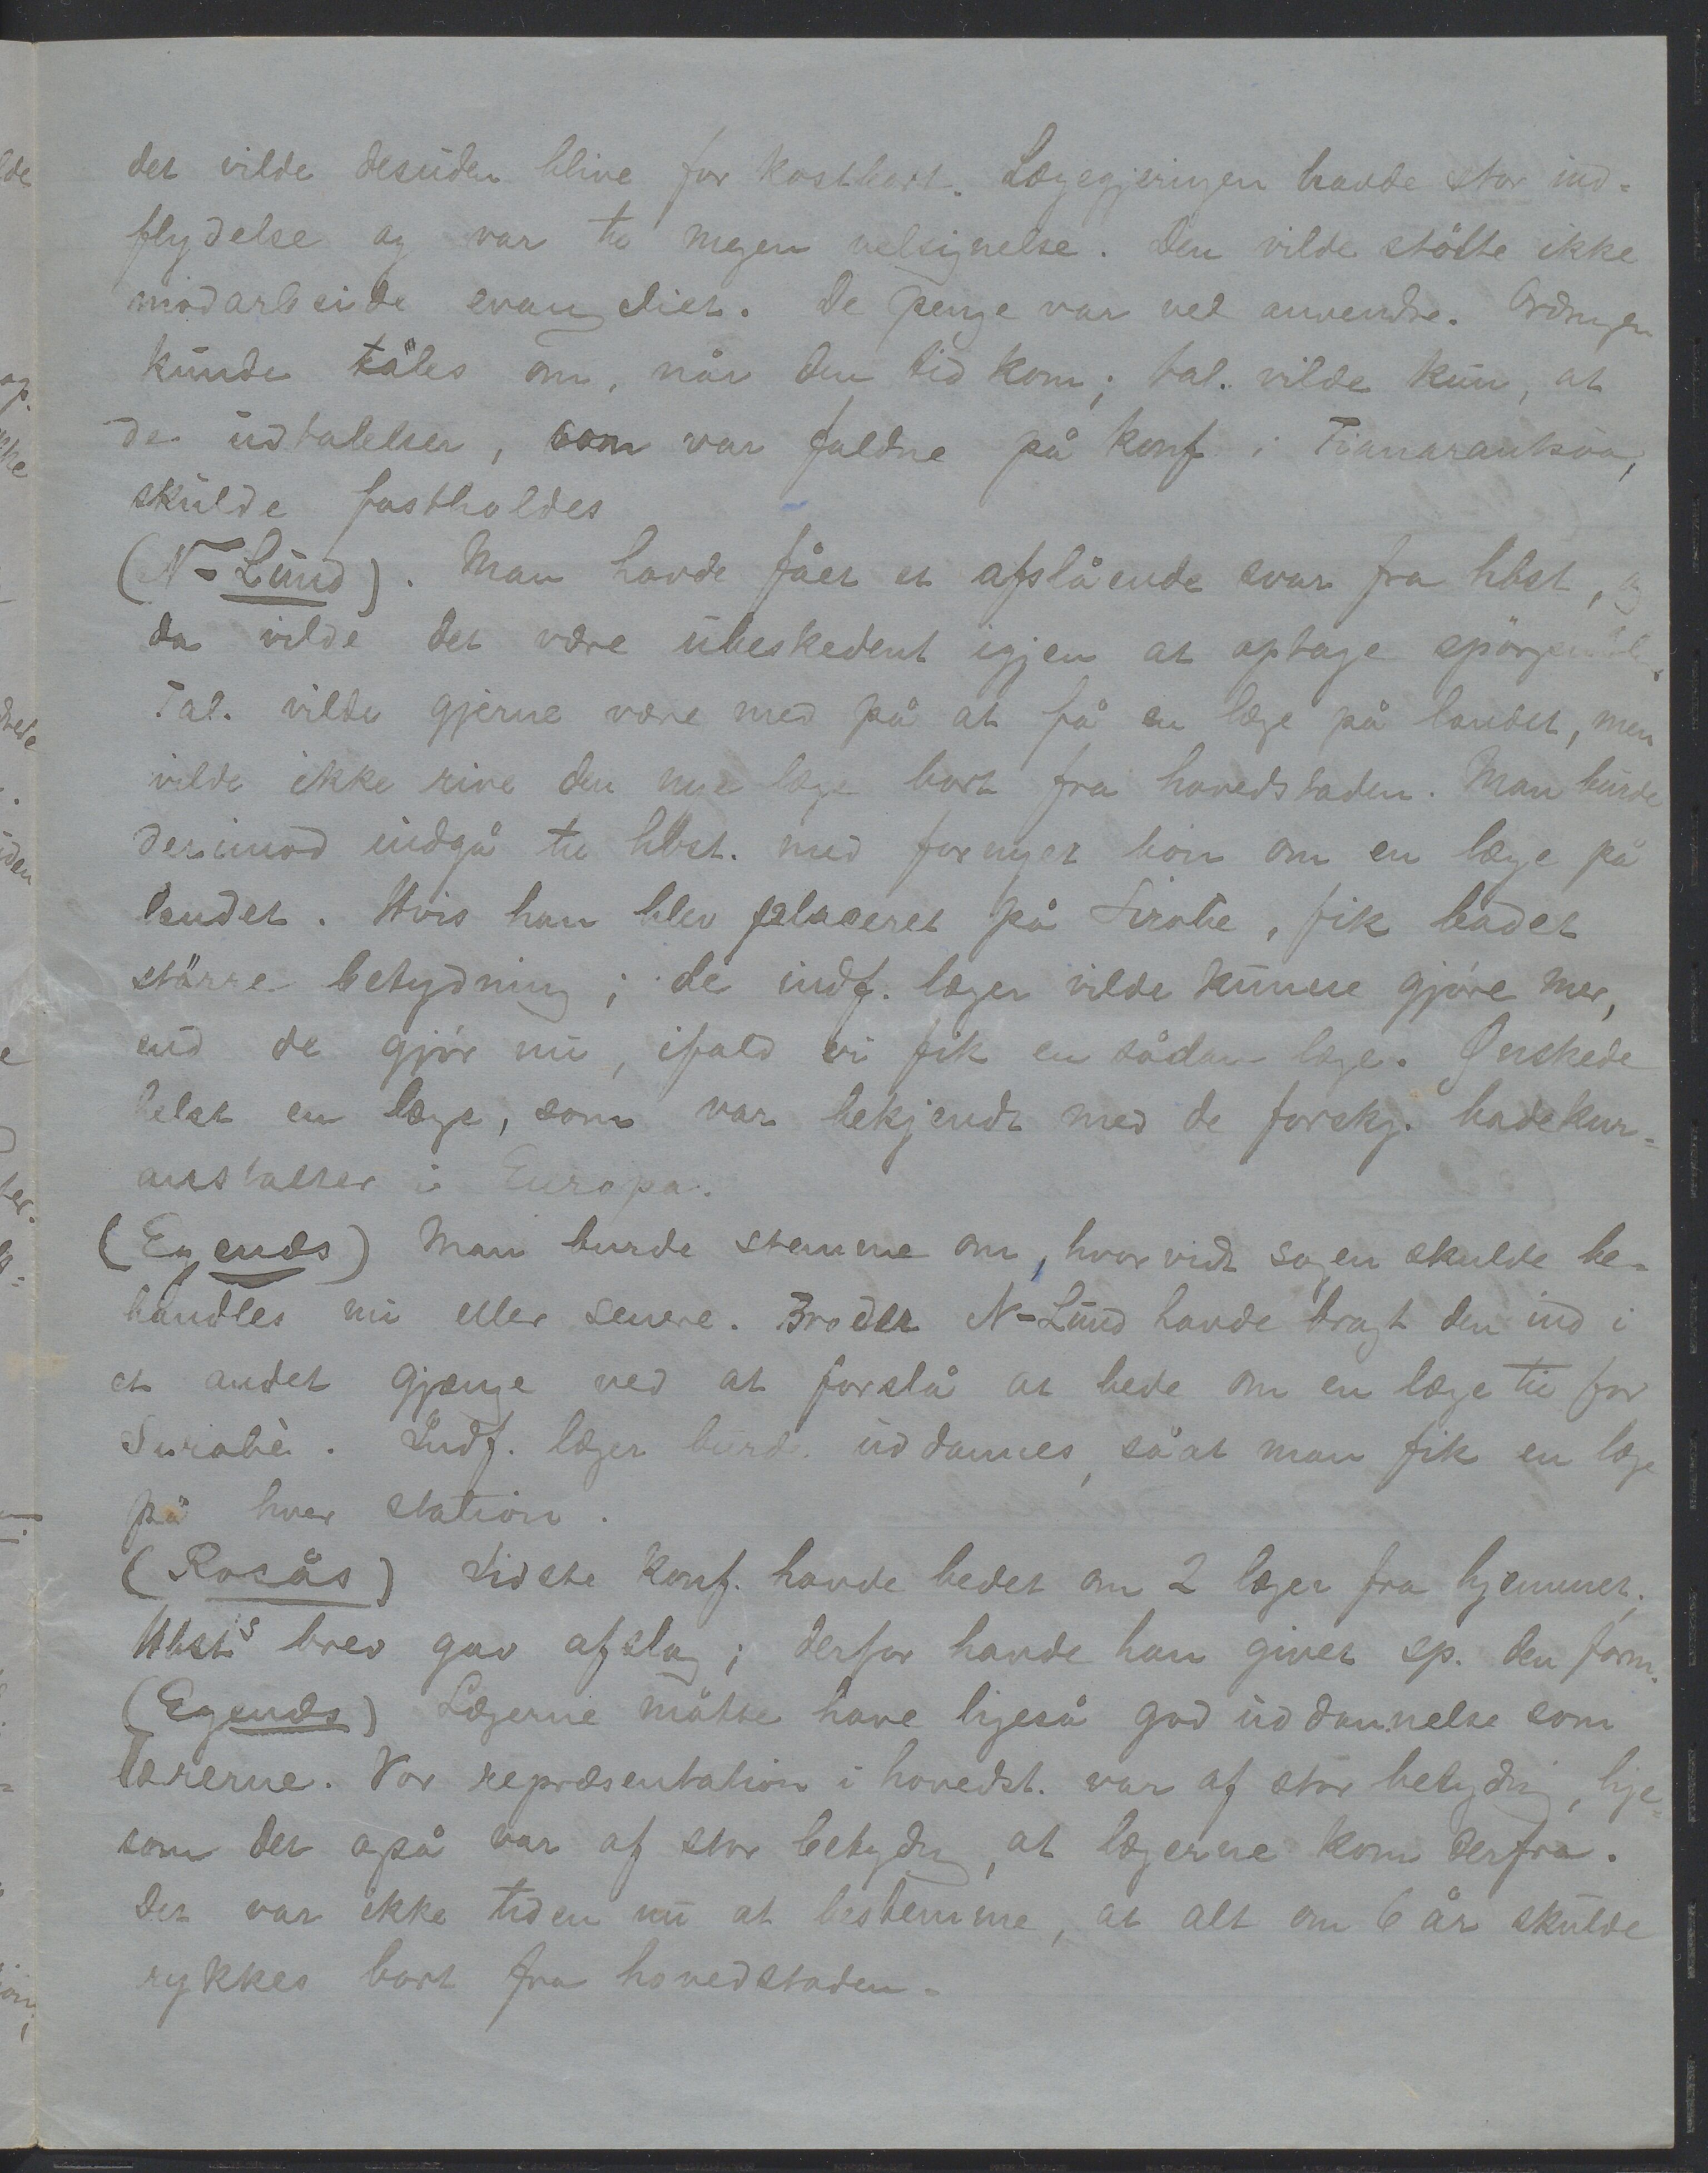 det vilde desuden blive for kostbart. Lægegjeringen havde stor ind-
flydelse og var til megen velsignelse. Den vilde støtte ikke
modarbeide evangeliet. De penge var vel anvendte. Ordningen
kunde tales om, når den tid kom; tal. vilde kun, at
de udtalelser, som var faldne på konf. i Fianarantsoa,
skulde fastholdes
(N-Lund). Man havde fået et afslående svar fra hbst, og
da vilde det være ubeskedent igjen at optage spørgsmålet.
Tal. vilde gjerne være med på at få en læge på landet, men
vilde ikke rive den nye læge bort fra hovedstaden. Man burde
derimod indgå til hbst. med fornyet bøn om en læge på
landet. Hvis han blev placeret på Sirabe, fik badet
større betydning; de indf. læger vilde kunne gjøre mer,
end de gjør nu, ifald vi fik en sådan læge. Ønskede
helst en læge, som var bekjendt med de forskj. badekur-
anstalter i Europa.
(Egenæs) Man burde stemme om, hvorvidt sagen skulde be-
handles nu eller senere. Broder N-Lund havde bragt den ind i
et andet gjænge ved at forslå at bede om en læge til for
Sirabè. Indf. læger burde uddannes, såat man fik en læge
på hver station.
(Rosås) Sidste konf. havde bedet om 2 læger fra hjemmet.
Hbsts brev gav afslag; derfor havde han givet sp. den form.
(Egenæs) Lægerne måtte have ligeså god uddannelse som
lærerne. Vor repræsentation i hovedst. var af stor betydng, lige-
som det også var af stor betydng, at lægerne kom derfra.
Det var ikke tiden nu at bestemme, at alt om 6 år skulde
rykkes bort fra hovedstaden.